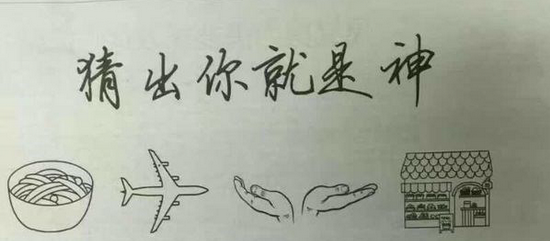 猜出你就是神